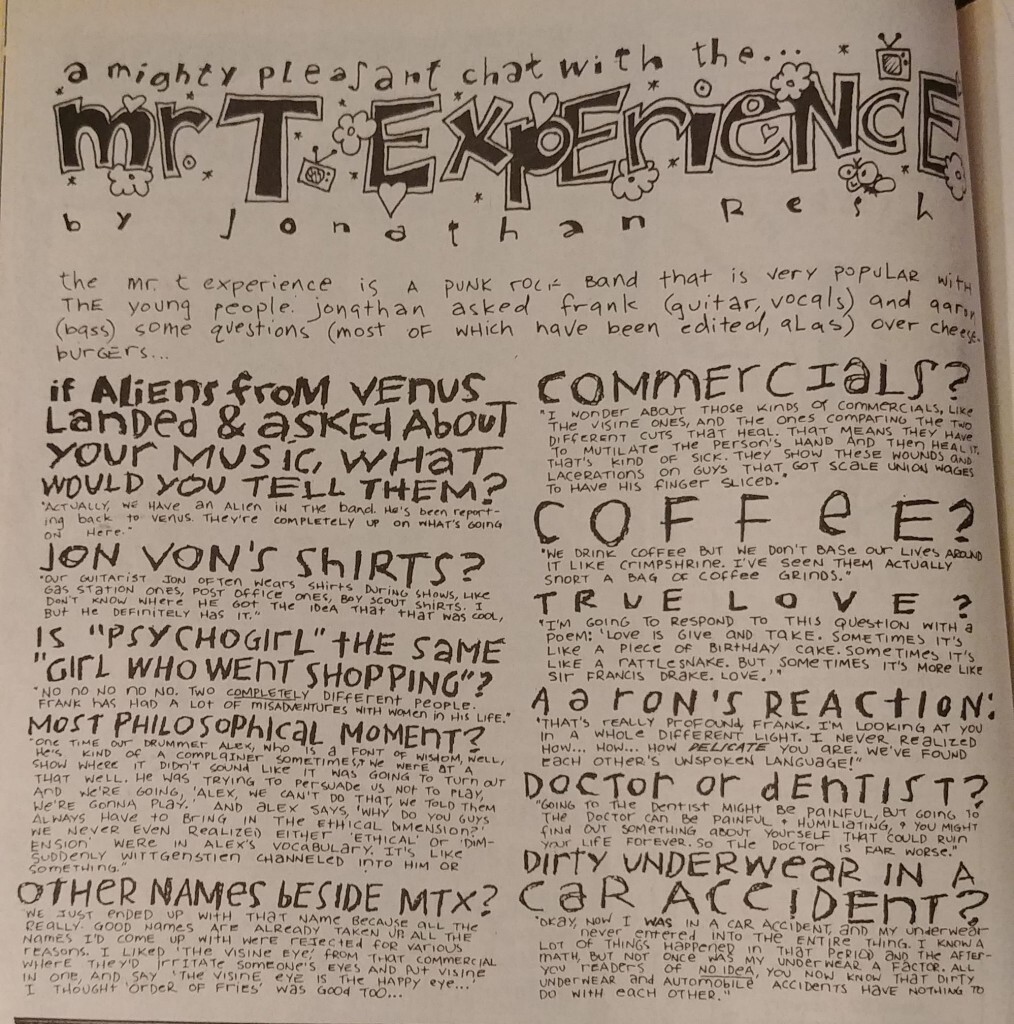 a mighty pleasant chat with the...
mr. T Experience
by Jonathan Resh
the mr. t experience is a punk rock band that is very popular with
the young people. jonathan asked frank (guitar, vocals) and aaron
(bass) some questions (most of which have been edited, alas) over cheese-
burgers...
if Aliens from Venus
Landed & asked About
your music, what
would you tell them?
"Actually, we have an alien in the band. He's been report-
ing back to Venus. They're completely up on what's going
on here."
Jon Von's Shirts?
"Our guitarist Jon often wears shirts during shows, like
gas station ones, post office ones, boy scout shirts. I
don't know where he got the idea that that was cool,
but he definitely has it."
Is "Psychogirl" the same
"Girl who went shopping"?
"No no no no no. Two completely different people.
Frank has had a lot of misadventures with women in his life."
Most philosophical moment?
"One time our drummer Alex, who is a font of wisdom, well,
he's kind of a complainer sometimes, & we were at a
show where it didn't sound like it was going to turn out
that well. He was trying to persuade us not to play,
and we're going, 'Alex, we can't do that, we told them
we're gonna play.' And Alex says, 'Why do you guys
always have to bring in the ethical dimension?'
We never even realized either 'ethical' or 'dim-
ension' were in Alex's vocabulary. It's like
suddenly Wittgenstien channeled into him or
something."
Other names beside MTX?
"We just ended up with that name because all the
really good names are already taken up. All the
names I'd come up with were rejected for various
reasons. I liked 'The Visine Eye,' from that commercial
where they'd irritate someone's eyes and put Visine
in one, and say 'The Visine eye is the happy eye...'
I thought 'Order of Fries' was good too...
Commercials?
"I wonder about those kinds of commercials, like
the Visine ones, and the ones comparing the two
different cuts that heal. That means they have
to mutilate the person's hand and then heal it.
That's kind of sick. They show these wounds and
lacerations on guys that got scale union wages
to have his finger sliced."
Coffee?
"We drink coffee but we don't base our lives around
it like Crimpshrine. I've seen them actually
snort a bag of coffee grinds."
True Love?
"I'm going to respond to this question with a
poem: 'Love is give and take. Sometimes it's
like a piece of birthday cake. Sometimes it's
like a rattlesnake. But sometimes it's more like
Sir Francis Drake. Love.'"
Aaron's Reaction:
"That's really profound, Frank. I'm looking at you
in a whole different light. I never realized
how... how... how delicate you are. We've found
each other's unspoken language!"
Doctor or dentist?
"Going to the dentist might be painful, but going to
the doctor can be painful & humiliating, & you might
find out something about yourself that could ruin
your life forever. So the doctor is far worse."
Dirty underwear in a
car accident?
"Okay, now I was in a car accident, and my underwear
never entered into the entire thing. I know a
lot of things happened in that period and the after-
math, but not once was my underwear a factor. All
you readers of No Idea, you now know that dirty
underwear and automobile accidents have nothing to
do with each other."